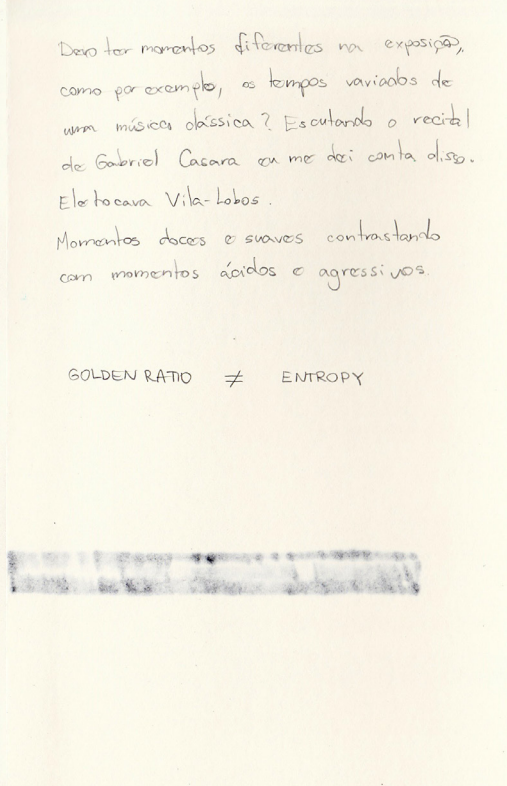 Devo ter momentos diferentes na exposição,
como por exemplo, os tempos variados de
uma música clássica? Escutando o recital
de Gabriel Casara eu me dei conta disso.
Ele tocava Vila-Lobos.
Momentos doces e suaves contrastando
com momentos ácidos e agressivos.
GOLDEN RATIO ≠ ENTROPY